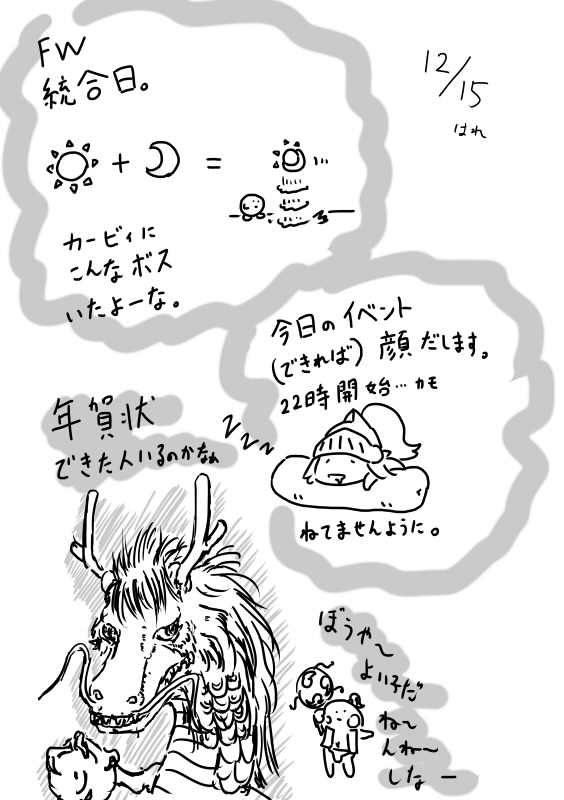 FW
統合日。
12/15
はれ
+ =
カービィに
こんなボス
いたよーな。
今日のイベント
(できれば)顔だします。
22時開始…カモ
zzzz
ねてませんように。
年賀状
できた人いるのかなぁ
ぼうや〜
よいこだ
ね〜
んね〜
しなー